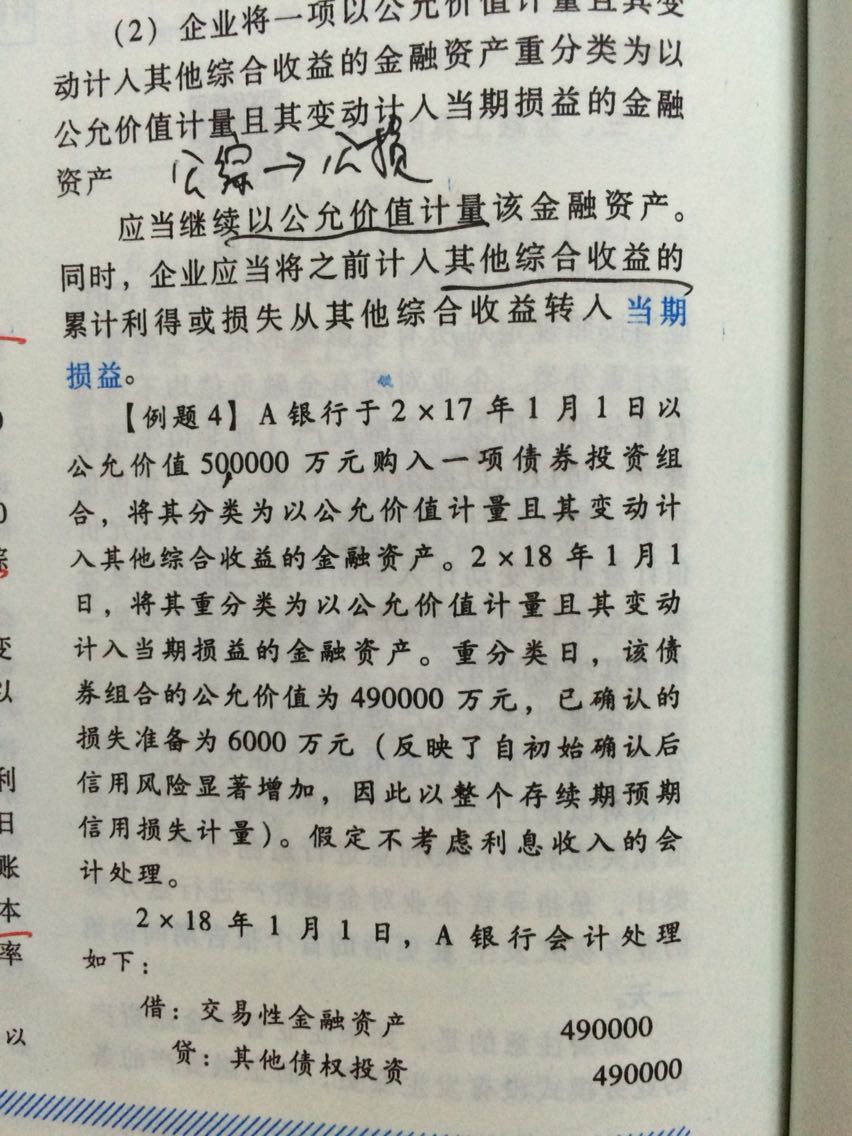 （2）企业将一项以公允价值计量且其变
动计入其他综合收益的金融资产重分类为以
公允价值计量且其变动计入当期损益的金融
资产 公综→公损
应当继续以公允价值计量该金融资产。
同时，企业应当将之前计入其他综合收益的
累计利得或损失从其他综合收益转入当期
损益。
【例题4】A银行于2×17年1月1日以
公允价值500000万元购入一项债券投资组
合，将其分类为以公允价值计量且其变动计
入其他综合收益的金融资产。2×18年1月1
日，将其重分类为以公允价值计量且其变动
计入当期损益的金融资产。重分类日，该债
券组合的公允价值为490000万元，已确认的
损失准备为6000万元（反映了自初始确认后
信用风险显著增加，因此以整个存续期预期
信用损失计量）。假定不考虑利息收入的会
计处理。
2×18年1月1日，A银行会计处理
如下：
借：交易性金融资产 490000
贷：其他债权投资 490000
利
日
账
本
率
以